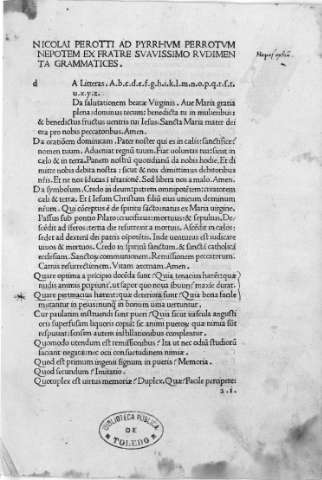 NICOLAI PEROTTI AD PYRRHVM PERROTVM
NEPOTEM EX FRATRE SVAVISSIMO RVDIMEN
TA GRAMMATICES.
d A Litteras. A.b.c.d.e.f.g.h.i.k.l.m.n.o.p.q.r.s.t.
u.x.y.z.
Da salutationem beatæ Virginis. Aue Maria gratia
plena: dominus tecum: benedicta tu in mulieribus:
& benedictus fructus uentris tui Iesus. Sancta Maria mater dei
ora pro nobis peccatoribus. Amen.
Da orationem dominicam. Pater noster qui es in cælis: sanctificet
nomen tuum. Adueniat regnū tuum. Fiat uoluntas tua: sicut in
cælo & in terra. Panem nostrū quotidianū da nobis hodie. Et di
mitte nobis debita nostra: sicut & nos dimittimus debitoribus
nris. Et ne nos iducas i tētationē. Sed libera nos a malo. Amen.
Da symbolum. Credo in deum: patrem omnipotentem: creatorem
cæli & terræ. Et i Iesum Christum filiū eius unicum dominum
nrum. Qui cōceptus ē de spiritu sācto: natus ex Maria uirgine.
Passus sub pontio Pilato: crucifixus: mortuus: & sepultus. De-
scēdit ad iferos: tertia die resurrexit a mortuis. Ascēdit in cælos:
sedet ad dexterā dei patris oīpotētis. Inde uenturus est iudicare
uiuos & mortuos. Credo in spiritū sanctum. & sanctā catholicā
ecclesiam. Sanctorū communionem. Remissionem peccatorum.
Carnis resurrectionem. Vitam æternam. Amen.
Quare optima a pricipio docēda sunt? Quia tenacius hærēt: quæ
rudis animis pcipiunt. ut sapor quo noua ibuitur maxie durat.
Quare pertinacius hærent: quæ deteriora sunt? Quia bona facile
mutantur in peius: nunq in bonum uitia uertuntur.
Cur paulatim instruendi sunt pueri? Quia sicut uascula angusti
oris superfusam liquoris copiā: sic animi pueroɽ quæ nimia sūt
respuunt: sensim autem instillationibus complentur.
Quomodo utendum est remissionibus? Ita ut nec odiū studiorū
faciant negatæ: nec ocii consuetudinem nimiæ.
Quod est primum ingenii signum in pueris? Memoria.
Quod secundum? Imitatio.
Quotuplex est uirtus memoriæ? Duplex. Quæ? Facile percipere:
a.i.
BIBLIOTECA PUBLICA
DE
TOLEDO